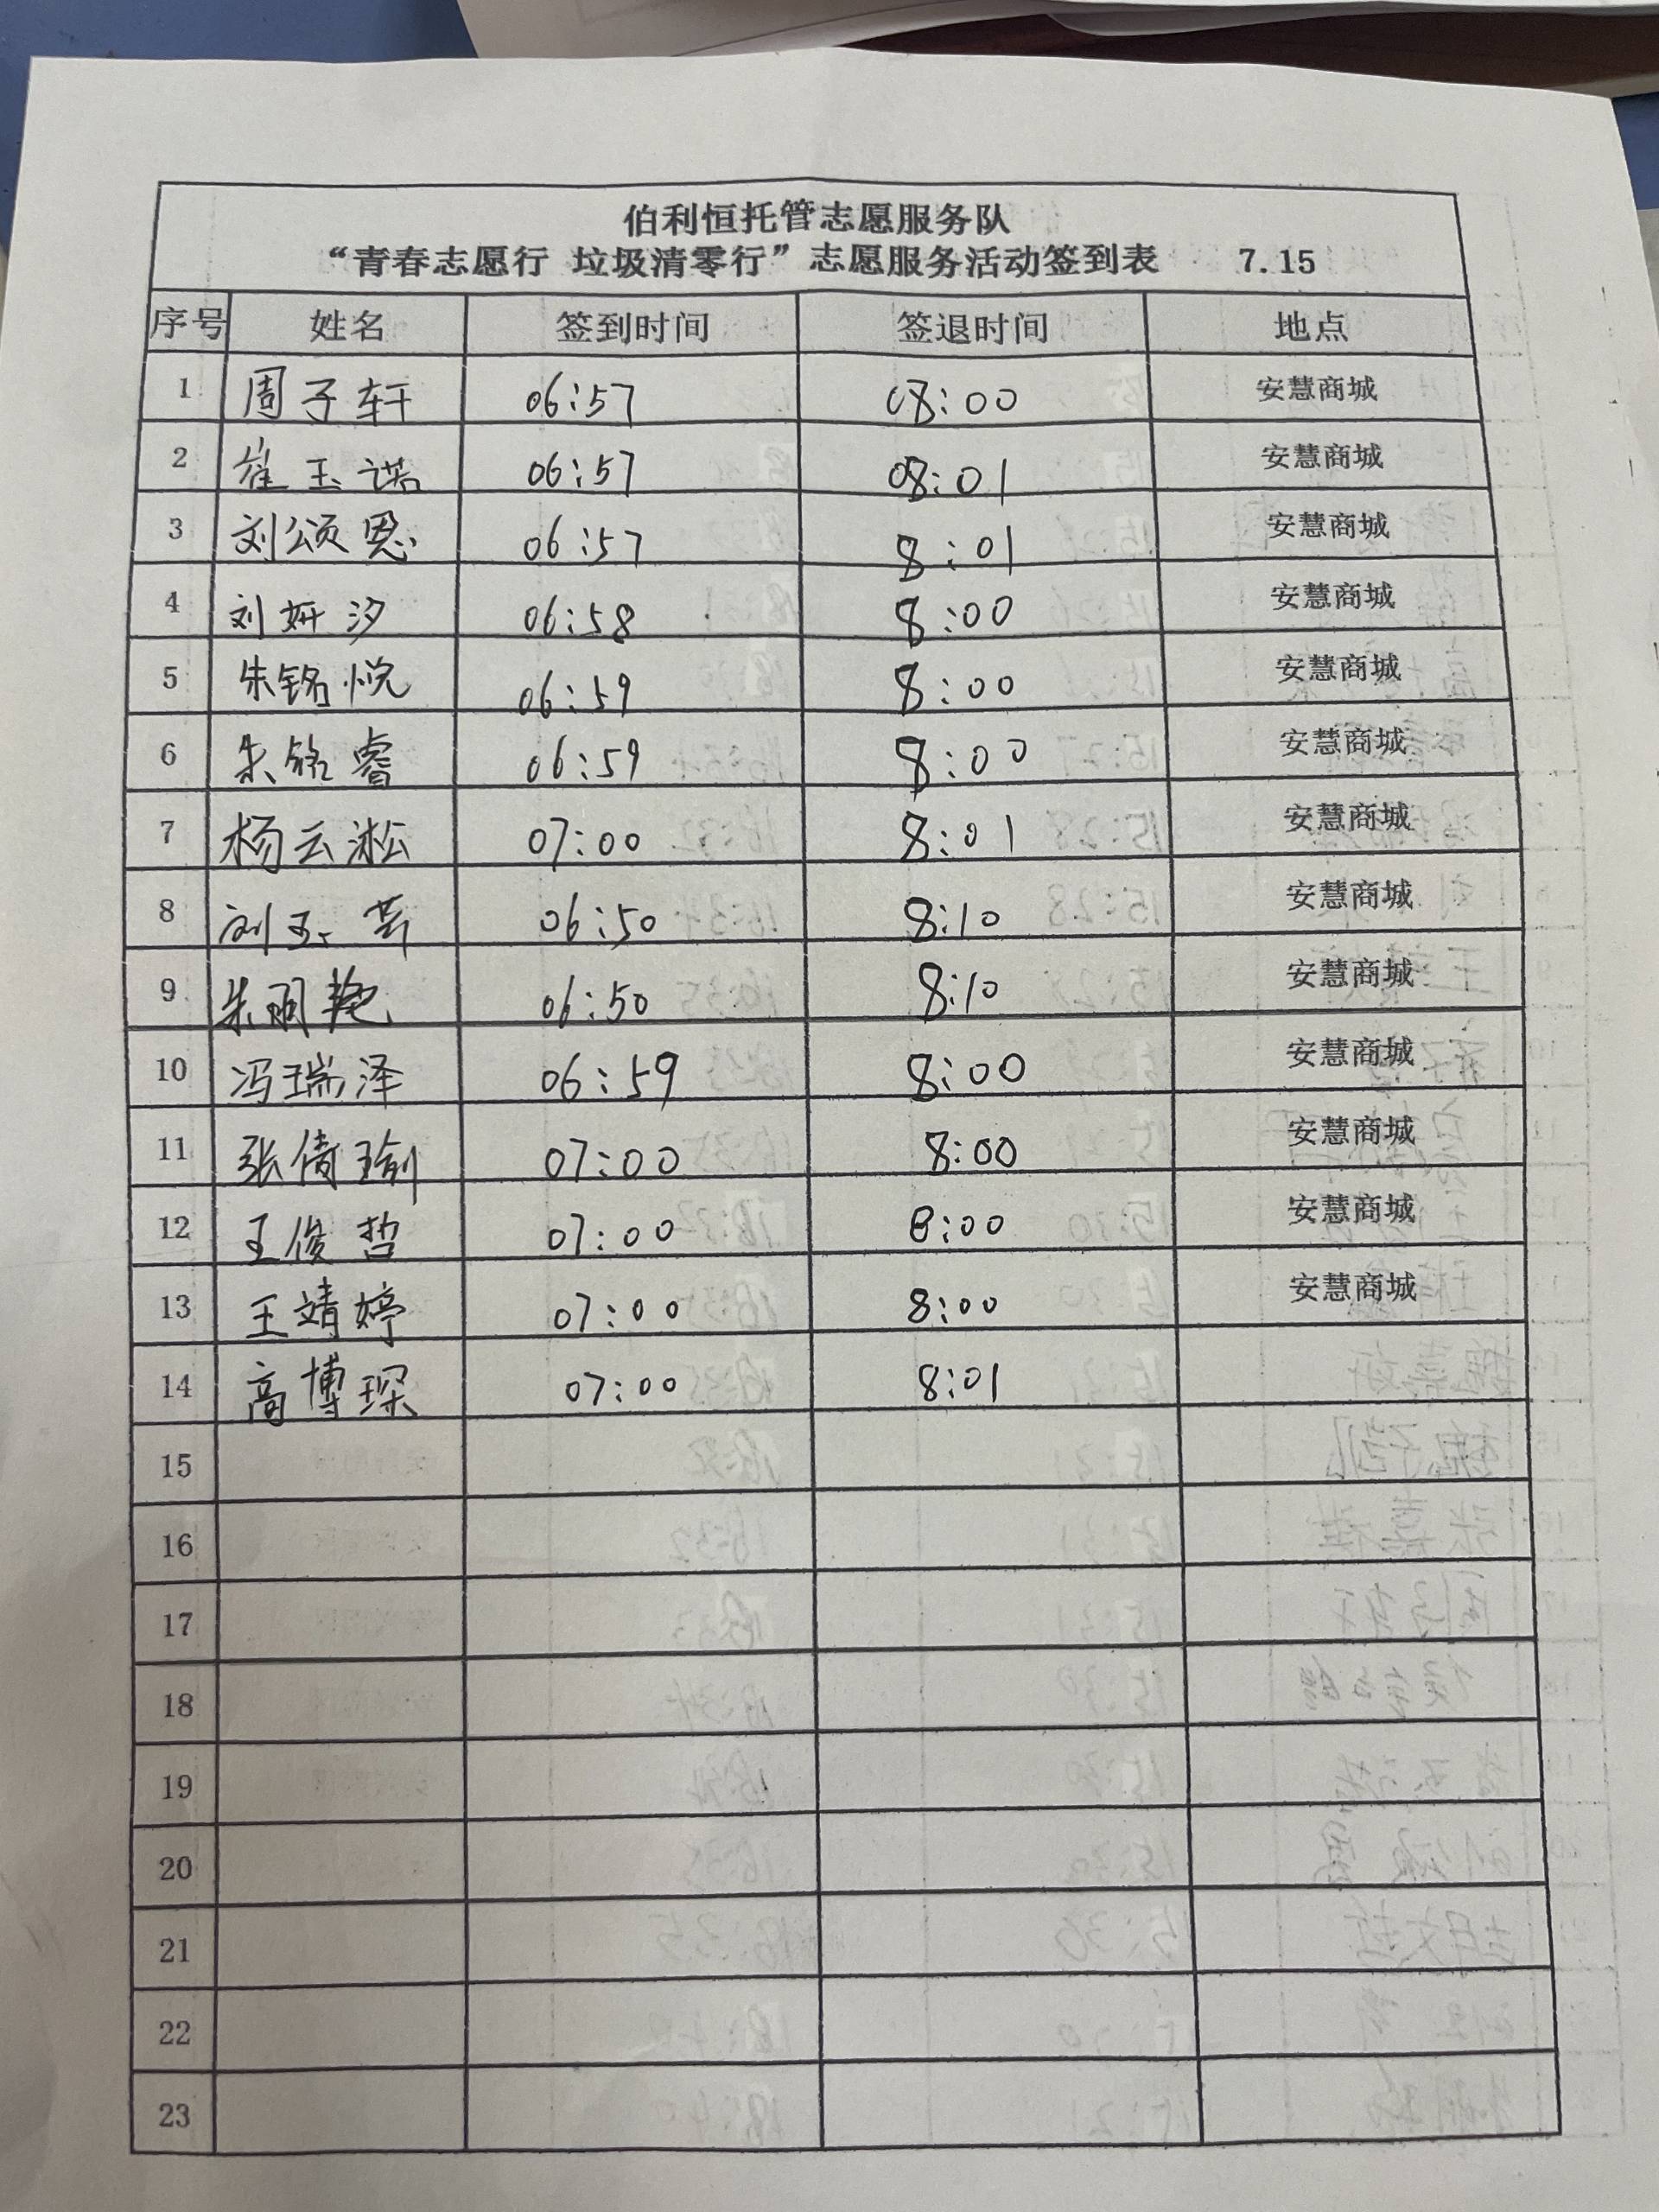 伯利恒托管志愿服务队
“青春志愿行 垃圾清零行”志愿服务活动签到表 7.15
序号 姓名 签到时间 签退时间 地点
1 周子轩 06:57 08:00 安慧商城
2 崔玉诺 06:57 08:01 安慧商城
3 刘颂恩 06:57 8:01 安慧商城
4 刘妍汐 06:58 8:00 安慧商城
5 朱铭悦 06:59 8:00 安慧商城
6 朱铭睿 06:59 8:00 安慧商城
7 杨云淞 07:00 8:01 安慧商城
8 刘玉芸 06:50 8:10 安慧商城
9 朱丽艳 06:50 8:10 安慧商城
10 冯瑞泽 06:59 8:00 安慧商城
11 张倩瑜 07:00 8:00 安慧商城
12 王俊哲 07:00 8:00 安慧商城
13 王靖婷 07:00 8:00 安慧商城
14 高博琛 07:00 8:01
15
16
17
18
19
20
21
22
23